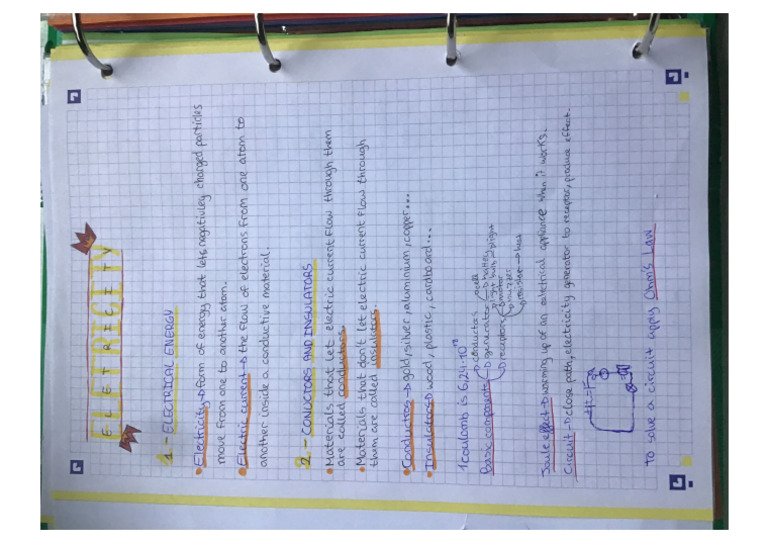 ELETRICITY
ELETRICITY
1 - ELECTRICAL ENERGY
• Electricity → form of energy that lets negativley charged particles
move from one to another atom.
• Electric current → the flow of electrons from one atom to
another inside a conductive material.
2 - CONDUCTORS AND INSULATORS
• Materials that let electric current flow through them
are called conductors.
• Materials that don't let electric current flow through
them are called insulators.
• Conductors → gold, silver, aluminium, copper...
• Insulators → wood, plastic, cardboard...
1 coulomb is 6,24·10¹⁸
Basic components → conductors
→ generator → battery
→ receptors
→ light bulb → light
→ resistor → heat
Joule effect → warming up of an eletrical appliance when it works.
Circuit → close path, electricity generator to receptor, produce effect.
To solve a circuit apply Ohm's Law.